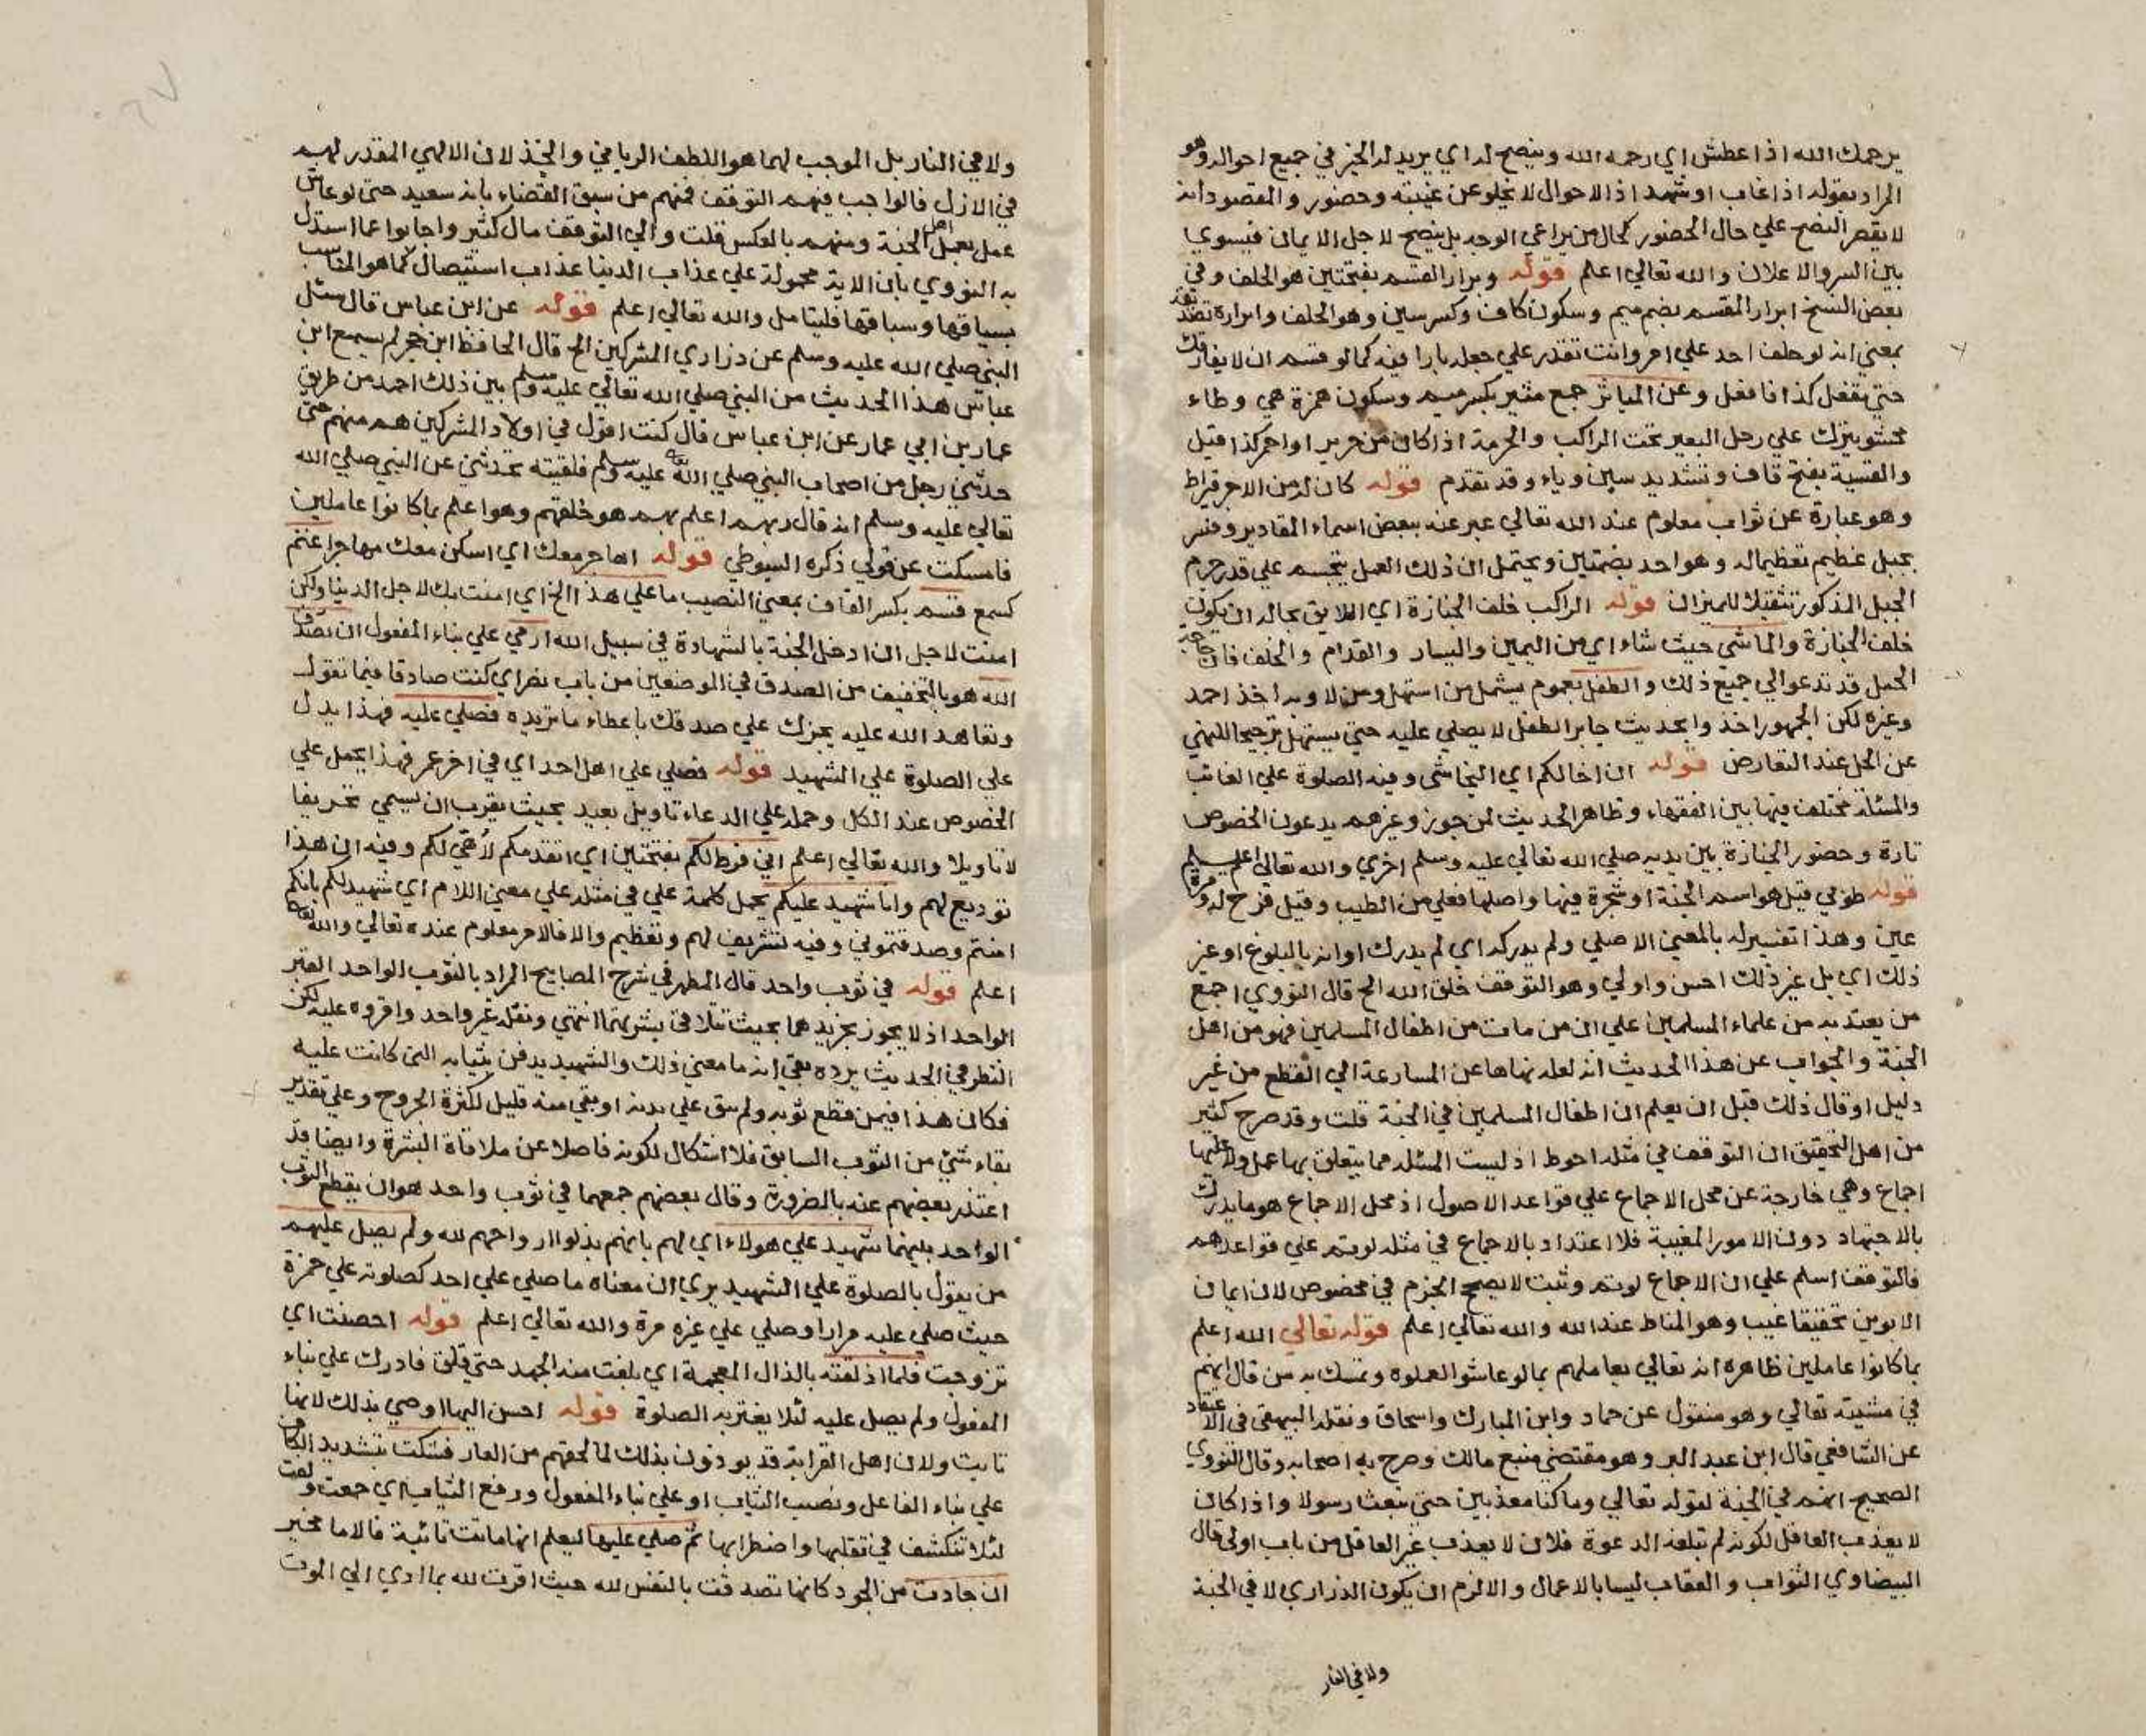 يرحمك الله اذا عطش اي رحمه الله وينصح له اي يريد له الخير في جميع احواله وهو
المراد بقوله اذا غاب او شهد اذ الاحوال لا يخلو عن غيبته وحضور والمقصود انه
لا يقصر النصح علي حال الحضور كحال من يراعي الوجه بل ينصح لاجل الايمان فيسوي
بين السر والاعلان والله تعالي اعلم قوله وبرار القسم بفتحتين هو الحلف وفي
بعض النسخ ابرار المقسم بضم ميم وسكون كاف وكسر سين وهو الحالف وابراره تصديقه
بمعني انه لو حلف احد علي امر وانت تقدر علي جعله بارا فيه كما لو قسم ان لا يفارقك
حتي تفعل كذا فافعل وعن المياثر جمع مئثر بكسر ميم وسكون همزة هي وطاء
محشو يترك علي رحل البعير تحت الراكب والحرمة اذا كان من حرير او احمر كذا قيل
والقسية بفتح قاف وتشديد سين وياء وقد تقدم قوله كان له من الاجر قيراط
وهو عبارة عن ثواب معلوم عند الله تعالي عبر عنه ببعض اسماء المقادير وفسر
بجبل عظيم تعظيما له وهو احد بضمتين ويحتمل ان ذلك العمل يتجسم علي قدر جرم
الجبل المذكور تثقيلا للميزان قوله الراكب خلف الجنازة اي اللايق بحاله ان يكون
خلف الجنازة والماشي حيث شاء اي من اليمين واليسار والقدام والخلف فان حاجة
الحمل قد تدعو الي جميع ذلك والطفل بعموم يشمل من استهل ومن لا وبه اخذ احمد
وغيره لكن الجمهور اخذوا بحديث جابر الطفل لا يصلي عليه حتي يستهل ترجيحا للنهي
عن الحل عند التعارض قوله ان اخا لكم اي النجاشي وفيه الصلوة علي الغائب
والمسئلة مختلف فيها بين الفقهاء وظاهر الحديث لمن جوز وغيرهم يدعون الخصوص
تارة وحضور الجنازة بين يديه صلي الله تعالي عليه وسلم اخري والله تعالي اعلم
قوله طوبي قيل هو اسم الجنة او شجرة فيها واصلها فعلي من الطيب وقيل فرح له وقرة
عين وهذا تفسير له بالمعني الاصلي ولم يدركه اي لم يدرك اوانه بالبلوغ او غير
ذلك اي بل غير ذلك احسن واولي وهو التوقف خلق الله الخ قال النووي اجمع
من يعتد به من علماء المسلمين علي ان من مات من اطفال المسلمين فهو من اهل
الجنة والجواب عن هذا الحديث انه لعله نهاها عن المسارعة الي القطع من غير
دليل او قال ذلك قبل ان يعلم ان اطفال المسلمين في الجنة قلت وقد صرح كثير
من اهل التحقيق ان التوقف في مثله احوط اذ ليست المسئلة مما يتعلق بها عمل ولا عليها
اجماع وهي خارجة عن محل الاجماع علي قواعد الاصول اذ محل الاجماع هو ما يدرك
بالاجتهاد دون الامور المغيبة فلا اعتداد بالاجماع في مثله لو يتم علي قواعدهم
فالتوقف اسلم علي ان الاجماع لو يتم وثبت لا يصح الجزم في مخصوص لان ايمان
الابوين تحقيقا غيب وهو المناط عند الله والله تعالي اعلم قوله تعالي الله اعلم
بما كانوا عاملين ظاهره انه تعالي يعاملهم بما لو عاشوا لعملوه وتمسك به من قال انهم
في مشيئته تعالي وهو منقول عن حماد وابن المبارك واسحاق ونقله البيهقي في الاعتقاد
عن الشافعي قال ابن عبد البر وهو مقتضي منبع مالك وصرح به اصحابه وقال النووي
الصحيح انهم في الجنة لقوله تعالي وما كنا معذبين حتي نبعث رسولا واذا كان
لا يعذب العاقل لكونه لم تبلغه الدعوة فلان لا يعذب غير العاقل من باب اولي قال
البيضاوي الثواب والعقاب ليسا بالاعمال والا لزم ان يكون الذراري لا في الجنة
ولا في النار
ولا في النار بل الموجب لهما هو اللطف الرباني والخذلان الالهي المقدر لهم
في الازل فالواجب فيهم التوقف فمنهم من سبق القضاء بانه سعيد حتي لو عاش
عمل بعمل اهل الجنة ومنهم بالعكس قلت والي التوقف مال كثير واجابوا عما استدل
به النووي بان الاية محمولة علي عذاب الدنيا عذاب استيصال كما هو المناسب
بسياقها وسباقها فليتامل والله تعالي اعلم قوله عن ابن عباس قال سئل
النبي صلي الله عليه وسلم عن دراري المشركين الخ قال الحافظ ابن حجر لم يسمع ابن
عباس هذا الحديث من النبي صلي الله تعالي عليه وسلم بين ذلك احمد من طريق
عمار بن ابي عمار عن ابن عباس قال كنت اقول في اولاد المشركين هم منهم حتي
حدثني رجل من اصحاب النبي صلي الله عليه وسلم فلقيته تحدثني عن النبي صلي الله
تعالي عليه وسلم انه قال ربهم اعلم بهم هو خلقهم وهو اعلم بما كانوا عاملين
فامسكت عن قولي ذكره السيوطي قوله اهاجر معك اي اسكن معك مهاجرا غنم
كسمع قسم بكسر القاف بمعني النصيب ما علي هذا الخ اي امنت بك لاجل الدنيا ولكن
امنت لاجل ان ادخل الجنة بالشهادة في سبيل الله ارمي علي بناء المفعول ان تصدق
الله هو بالتخفيف من الصدق في الموضعين من باب نصر اي كنت صادقا فيما تقول
وتعاهد الله عليه يجزك علي صدقك باعطاء ما تريده فصلي عليه فهذا يدل
علي الصلوة علي الشهيد قوله فصلي علي اهل احد اي في اخر عمر فهذا يحمل علي
الخصوص عند الكل وحمله علي الدعاء تاويل بعيد بحيث يقرب ان يسمي تحريفا
لا تاويلا والله تعالي اعلم اني فرط لكم بفتحتين اي اتقدمكم لأهيئ لكم وفيه ان هذا
توديع لهم وانا شهيد عليكم يحمل كلمة علي في مثله علي معني اللام اي شهيد لكم بانكم
امنتم وصدقتموني وفيه تشريف لهم وتعظيم والا فالامر معلوم عنده تعالي والله تعالي
اعلم قوله في ثوب واحد قال المظهر في شرح المصابيح المراد بالثوب الواحد القبر
الواحد اذ لا يجوز تجريدهما بحيث تتلاقي بشرتهما انتهي ونقله غير واحد واقروه عليه لكن
النظر في الحديث يرده بقي انه ما معني ذلك والشهيد يدفن بثيابه التي كانت عليه
فكان هذا فيمن قطع ثوبه ولم يبق علي بدنه او بقي منه قليل لكثرة الجروح وعلي تقدير
بقاء شيئ من الثوب السابق فلا اشكال لكونه فاصلا عن ملاقاة البشرة وايضا قد
اعتذر بعضهم عنه بالضرورة وقال بعضهم جمعهما في ثوب واحد هو ان يقطع الثوب
الواحد بينهما شهيد علي هولاء اي لهم بانهم بذلوا ارواحهم لله ولم يصل عليهم
من يقول بالصلوة علي الشهيد يري ان معناه ما صلي علي احد كصلوته علي حمزة
حيث صلي عليه مرارا وصلي علي غيره مرة والله تعالي اعلم قوله احصنت اي
تزوجت فلما اذلقته بالذال المعجمة اي بلغت منه الجهد حتي قلق فادرك علي بناء
المفعول ولم يصل عليه لئلا يغتر به الصلوة قوله احسن اليها اوصي بذلك لانها
تابت ولان اهل القرابة قد يوذون بذلك لما لحقهم من العار فشكت بتشديد الكاف
علي بناء الفاعل ونصب الثياب او علي بناء المفعول ورفع الثياب اي جمعت ولفت
لئلا تنكشف في تقلبها واضطرابها ثم صلي عليها ليعلم انها ماتت تائبة فالاما مخير
ان جادت من الجود كانها تصدقت بالنفس لله حيث اقرت لله بما ادي الي الموت